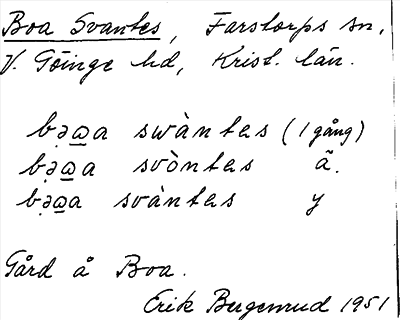 Boa Svantes, Farstorps sn,
V. Göinge hd, Krist. län.
bəωa swàntas (1 gång)
bəωa svòntas ã.
bəωa svàntas y
Gård å Boa.
Erik Bergenrud 1951